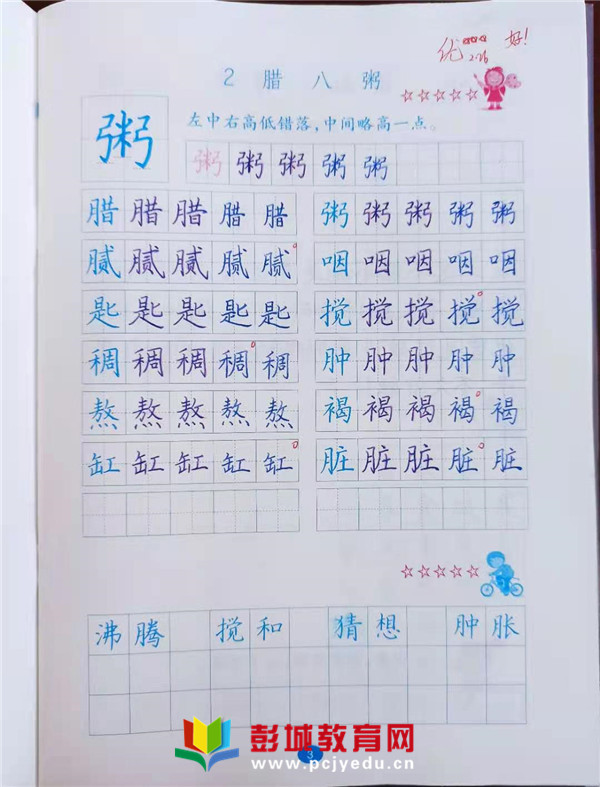 优 好!
2 腊 八 粥
粥 左中右高低错落,中间略高一点。
粥 粥 粥 粥 粥
腊 腊 腊 腊 腊 粥 粥 粥 粥 粥
腻 腻 腻 腻 腻 咽 咽 咽 咽 咽
匙 匙 匙 匙 匙 搅 搅 搅 搅 搅
稠 稠 稠 稠 稠 肿 肿 肿 肿 肿
熬 熬 熬 熬 熬 褐 褐 褐 褐 褐
缸 缸 缸 缸 缸 脏 脏 脏 脏 脏
沸 腾 搅 和 猜 想 肿 胀
彭城教育网
3
www.pcjyedu.cn